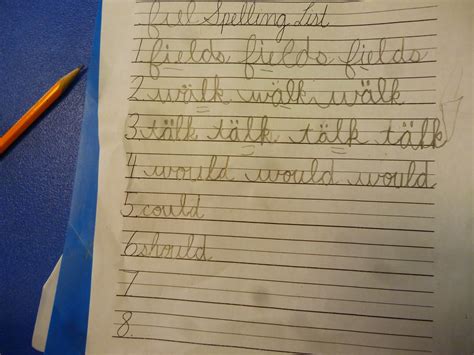 fiel Spelling List
1 fields fields fields
2 wälk wälk wälk
3. tälk tälk tälk tälk
4 would would would
5 could
6 should
7
8.